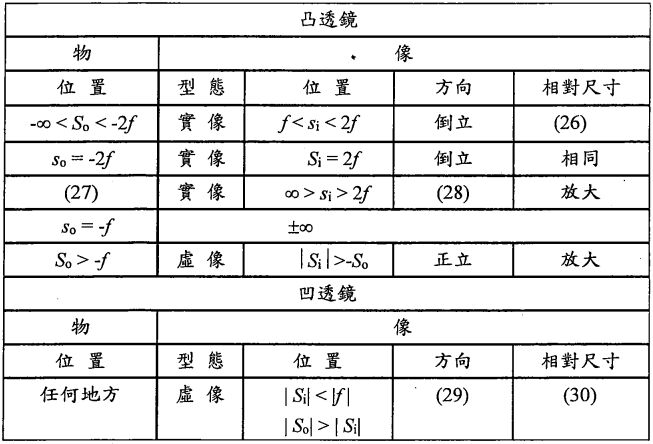 凸透鏡
物 像
位置 型態 位置 方向 相對尺寸
-∞ < So < -2f 實像 f < si < 2f 倒立 (26)
so = -2f 實像 Si = 2f 倒立 相同
(27) 實像 ∞ > si > 2f (28) 放大
so = -f ±∞
So > -f 虛像 |Si| >-So 正立 放大
凹透鏡
物 像
位置 型態 位置 方向 相對尺寸
任何地方 虛像 |Si| < |f| (29) (30)
|So| > |Si|